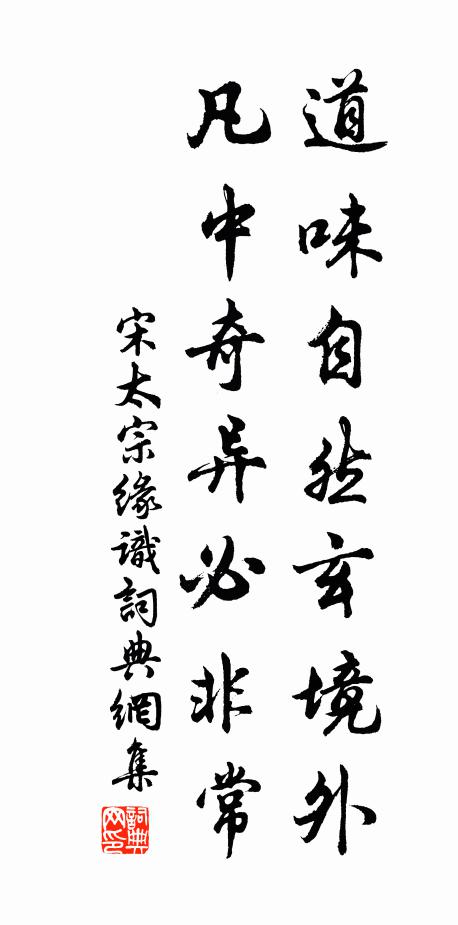 道味自然玄境外
凡中奇异必非常
宋太宗缘識詞典網集
詞典网印